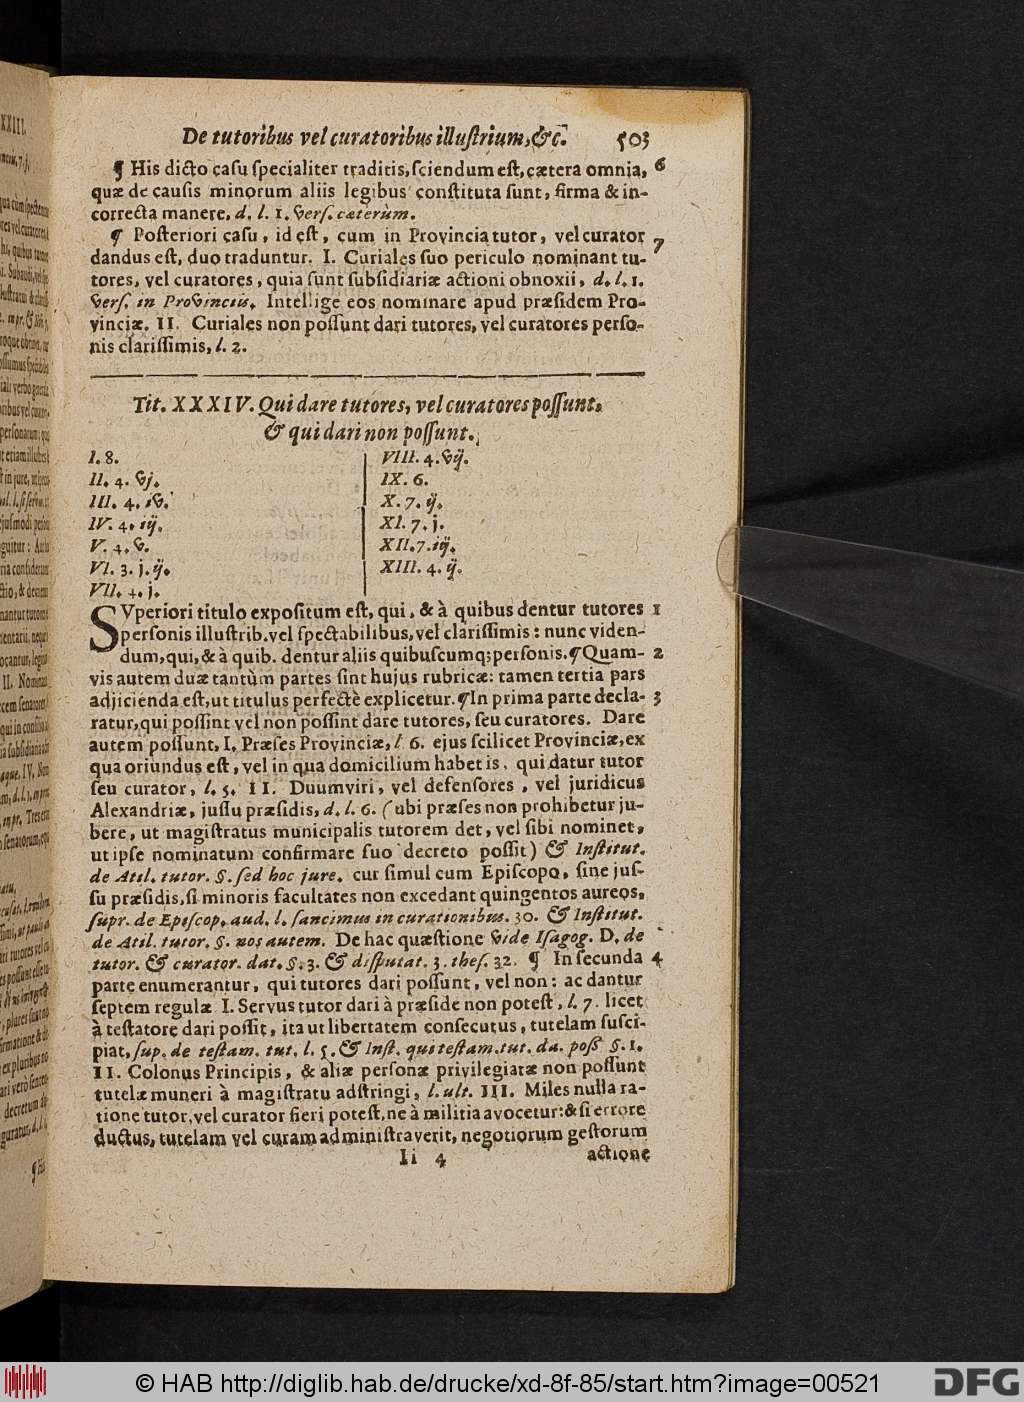 De tutoribus vel curatoribus illustrium, &c. 503
¶ His dicto casu specialiter traditis, sciendum est, cætera omnia, 6
quæ de causis minorum aliis legibus constituta sunt, firma & in-
correcta manere, d. l. 1. vers. cæterùm.
¶ Posteriori casu, id est, cum in Provincia tutor, vel curator 7
dandus est, duo traduntur. I. Curiales suo periculo nominant tu-
tores, vel curatores, quia sunt subsidiariæ actioni obnoxii, d. l. 1.
vers. in Provinciis. Intellige eos nominare apud præsidem Pro-
vinciæ. II. Curiales non possunt dari tutores, vel curatores perso-
nis clarissimis, l. 2.
Tit. XXXIV. Qui dare tutores, vel curatores possunt,
& qui dari non possunt.
I. 8.
II. 4. vj.
III. 4. iv.
IV. 4. iij.
V. 4. v.
VI. 3. j. ij.
VII. 4. j.
VIII. 4. vij.
IX. 6.
X. 7. ij.
XI. 7. j.
XII. 7. iij.
XIII. 4. ij.
SUperiori titulo expositum est, qui, & à quibus dentur tutores 1
personis illustrib. vel spectabilibus, vel clarissimis: nunc viden-
dum, qui, & à quib. dentur aliis quibuscumq; personis. ¶ Quam- 2
vis autem duæ tantùm partes sint hujus rubricæ: tamen tertia pars
adjicienda est, ut titulus perfectè explicetur. ¶ In prima parte decla- 3
ratur, qui possint vel non possint dare tutores, seu curatores. Dare
autem possunt, I. Præses Provinciæ, l. 6. ejus scilicet Provinciæ, ex
qua oriundus est, vel in qua domicilium habet is, qui datur tutor
seu curator, l. 5. II. Duumviri, vel defensores, vel juridicus
Alexandriæ, jussu præsidis, d. l. 6. (ubi præses non prohibetur ju-
bere, ut magistratus municipalis tutorem det, vel sibi nominet,
ut ipse nominatum confirmare suo decreto possit) & Institut.
de Atil. tutor. §. sed hoc jure. cur simul cum Episcopo, sine jus-
su præsidis, si minoris facultates non excedant quingentos aureos,
supr. de Episcop. aud. l. sancimus in curationibus. 30. & Institut.
de Atil. tutor. §. nos autem. De hac quæstione vide Isagog. D. de
tutor. & curator. dat. §. 3. & disputat. 3. thes. 32. ¶ In secunda 4
parte enumerantur, qui tutores dari possunt, vel non: ac dantur
septem regulæ I. Servus tutor dari à præside non potest, l. 7. licet
à testatore dari possit, ita ut libertatem consecutus, tutelam susci-
piat, sup. de testam. tut. l. 5. & Inst. qui testam. tut. da. poss §. 1.
II. Colonus Principis, & aliæ personæ privilegiatæ non possunt
tutelæ muneri à magistratu adstringi, l. ult. III. Miles nulla ra-
tione tutor, vel curator fieri potest, ne à militia avocetur: & si errore
ductus, tutelam vel curam administraverit, negotiorum gestorum
Ii 4 actione
© HAB http://diglib.hab.de/drucke/xd-8f-85/start.htm?image=00521
DFG